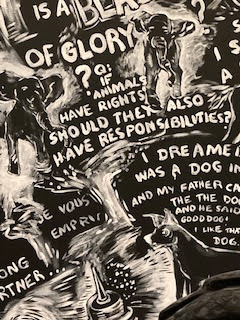 IS A BE
OF GLORY
?
?
Q:
IF
ANIMALS
HAVE RIGHTS
SHOULD THEY ALSO
HAVE RESPONSIBILITIES?
I S
I DREAMED
WAS A DOG IN
AND MY FATHER CA
THE THE DO
AND HE SAID
GOOD DOG!
I LIKE THAT
DOG.
E VOUS
EMPRIV
ONG
RTNER...